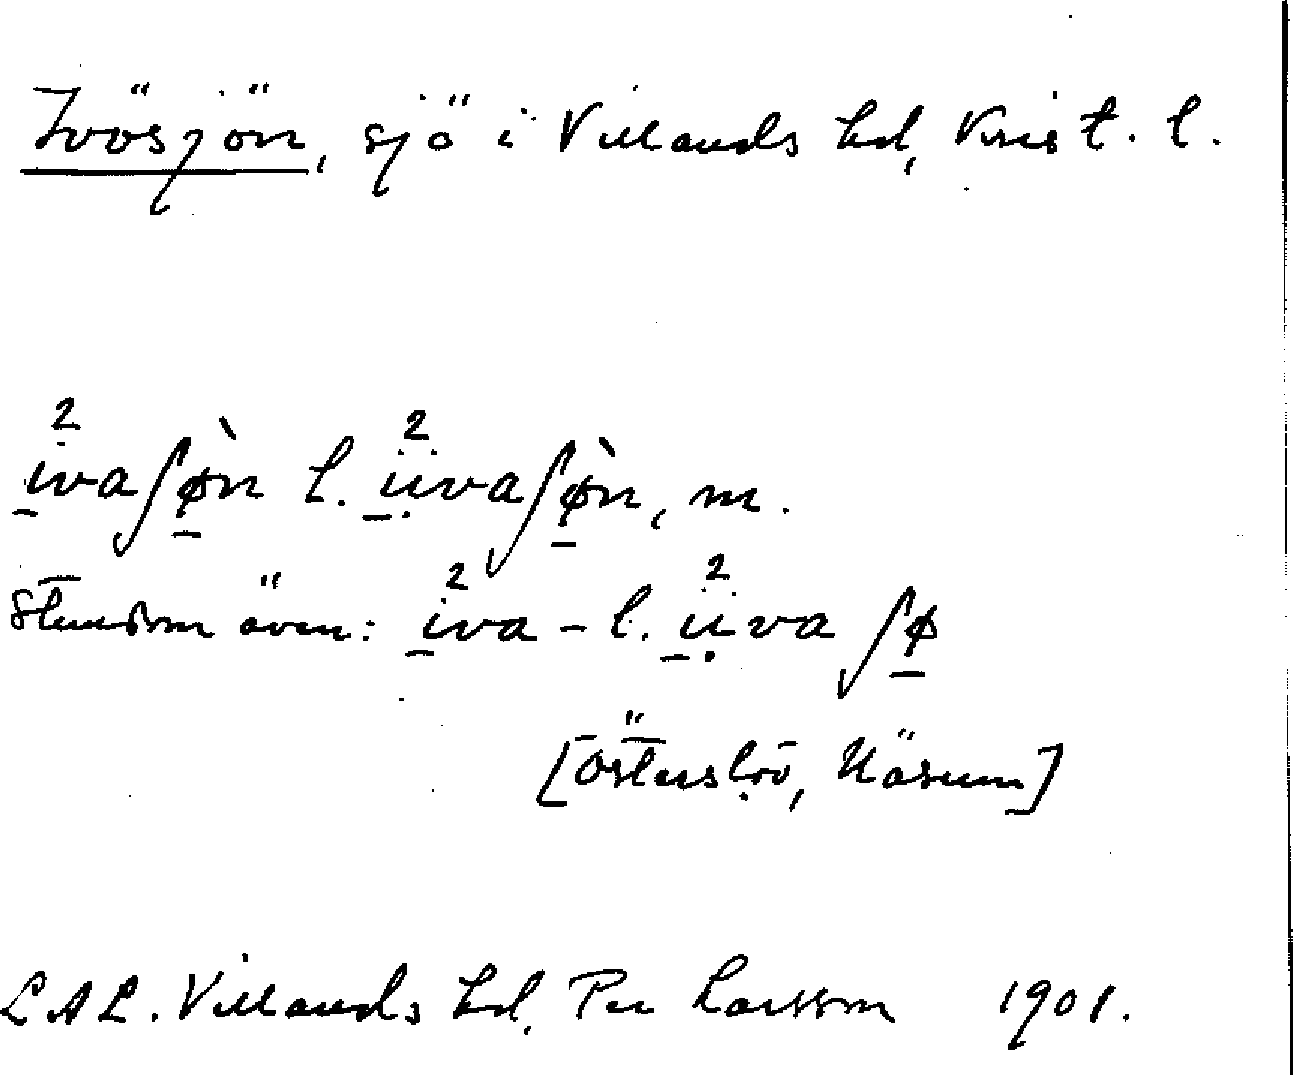 Ivösjön, sjö i Villands hd, Krist. l.
i̠²vaʃø̠̀n l. ü̠²vaʃø̠̀n, m.
Stundom även: i̠²va- l. ü̠²vaʃø̠
[Österslöv, Näsum]
LAL. Villands hd, Per Larsson 1901.